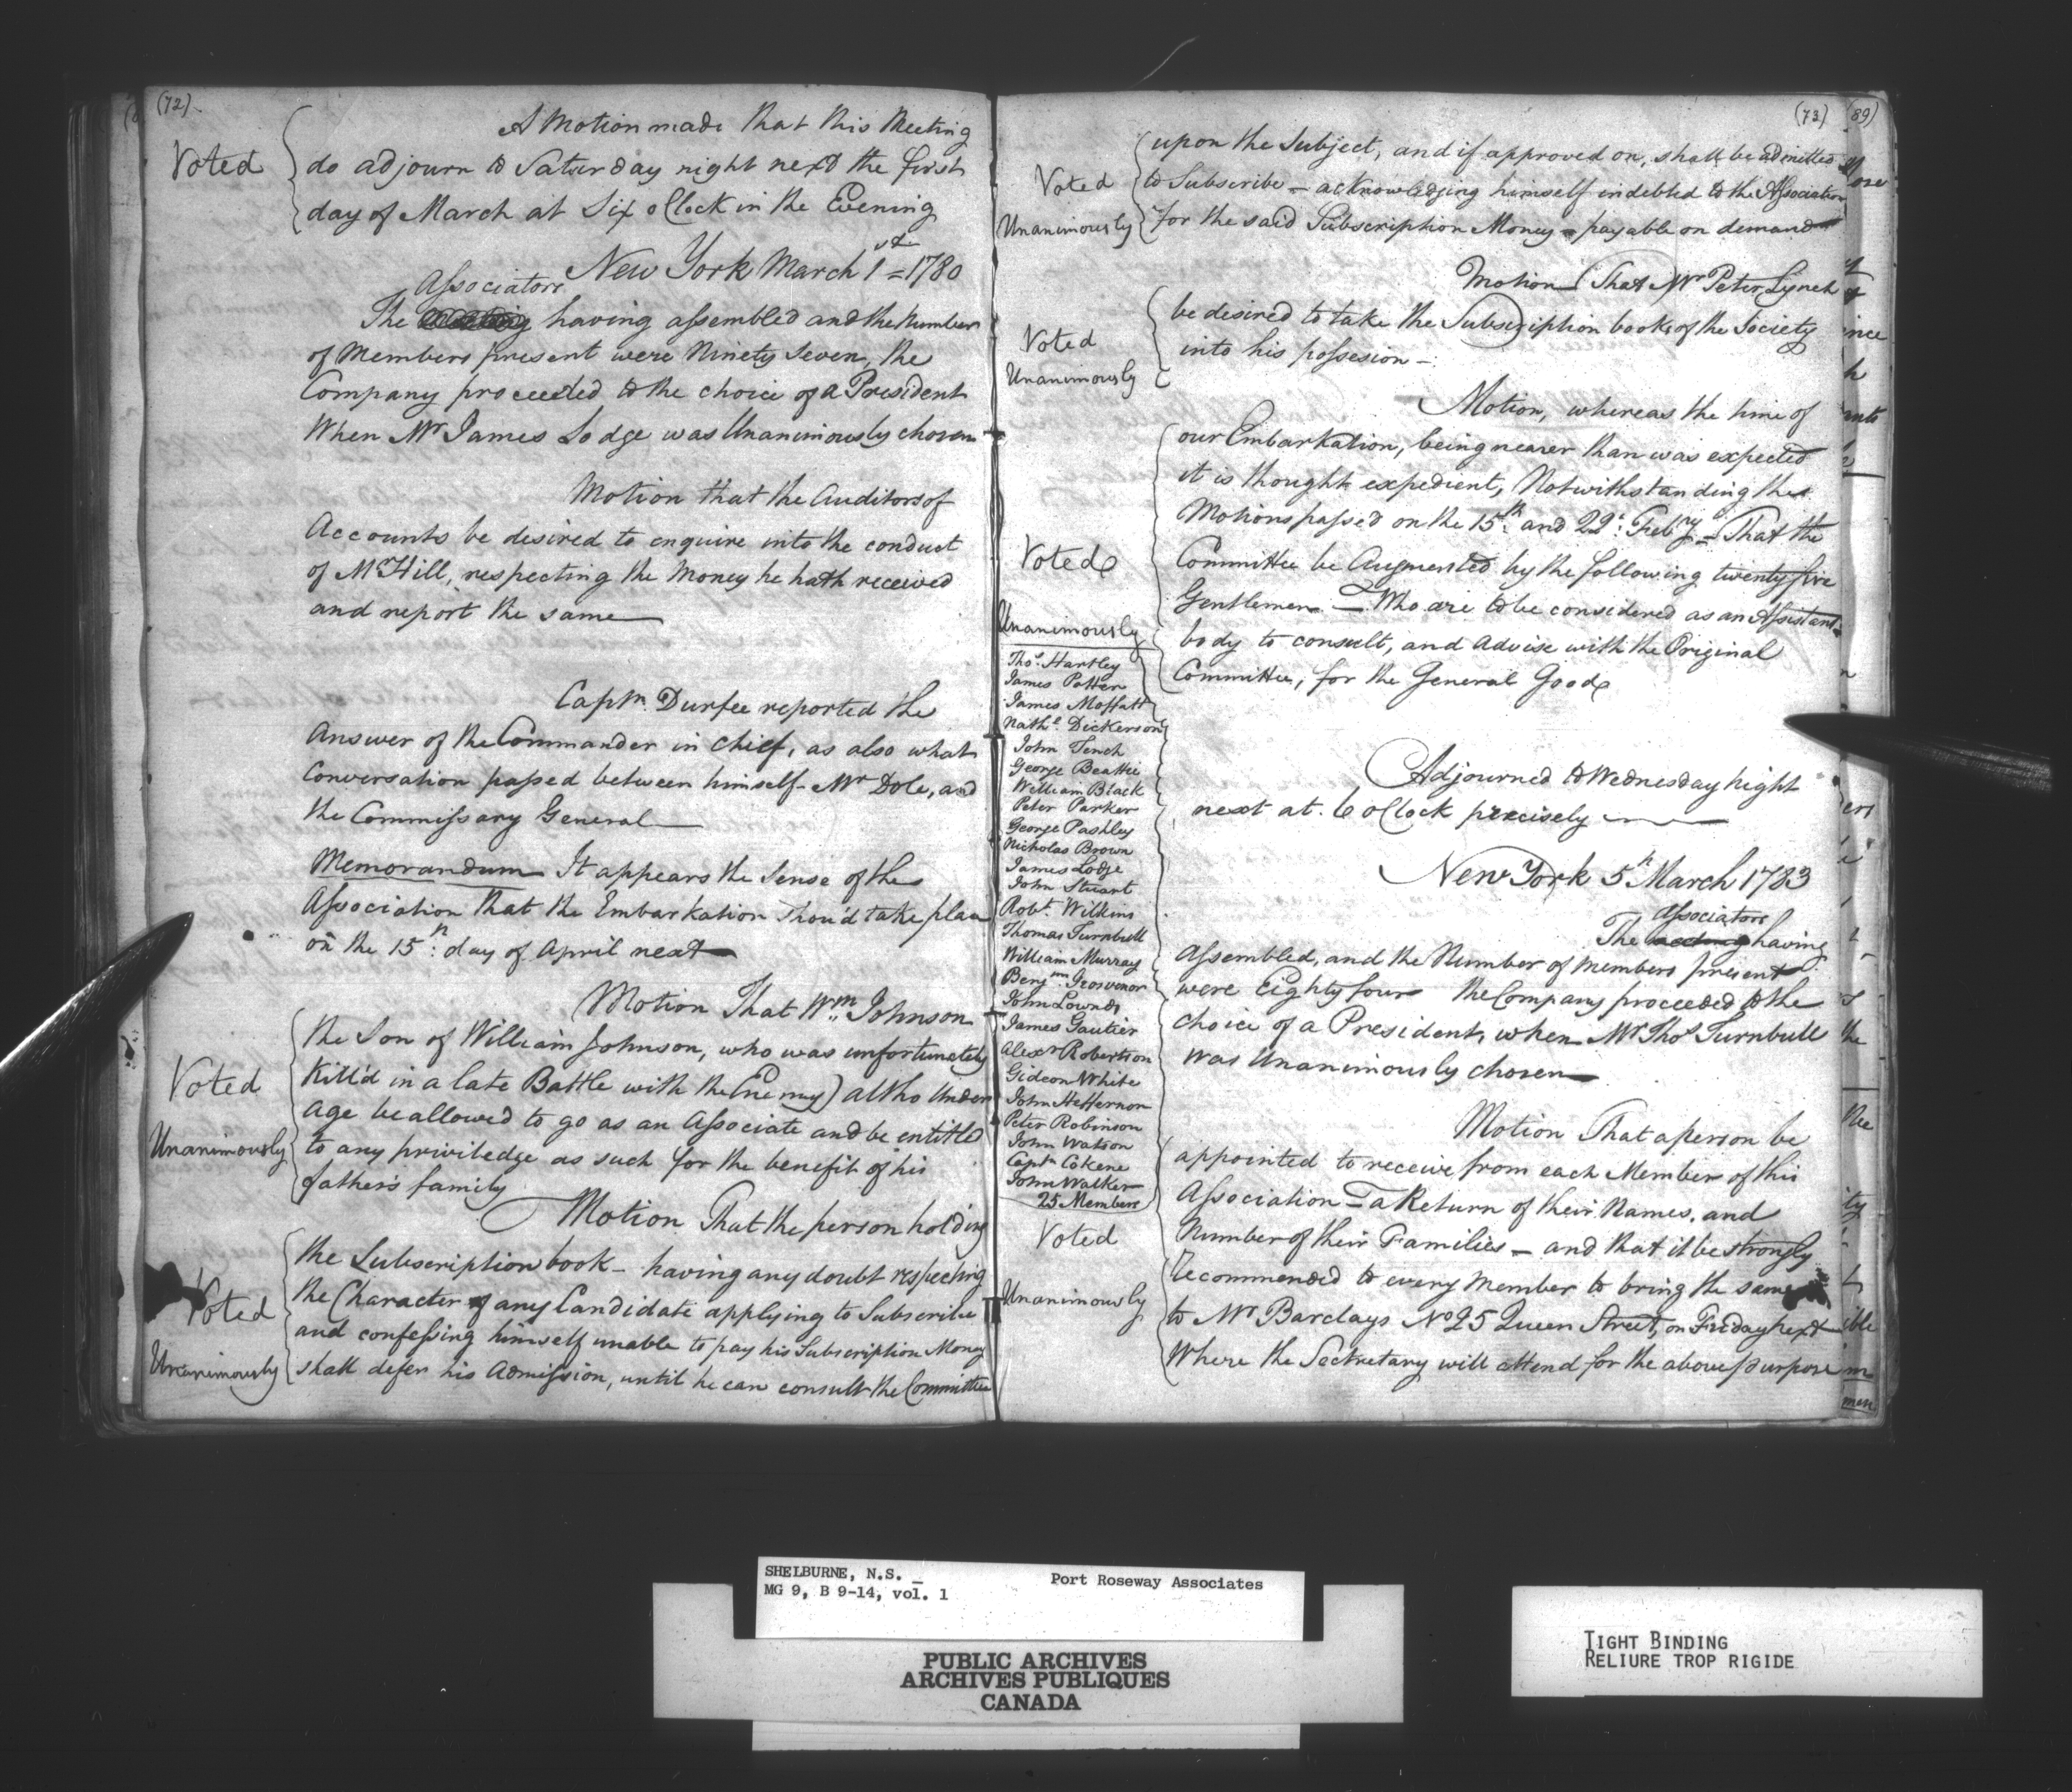 (72)
A Motion made that this Meeting
Voted
do adjourn to Saturday night next the first
day of March at Six oClock in the Evening
New York March 1st = 1780
Associators
The having assembled and the number
of Members present were Ninety Seven, the
Company proceeded to the choice of a President
When Mr James Lodge was Unanimously chosen
Motion that the Auditors of
Accounts be desired to enquire into the conduct
of Mr Hill, respecting the Money he hath received
and report the same
Captn. Durfee reported the
Answer of the Commander in Chief, as also what
Conversation passed between himself - Mr Dole, and
the Commissary General
Memorandum It appears the Sense of the
Association that the Embarkation Shou'd take place
on the 15th day of April next
Motion That Wm. Johnson
the Son of William Johnson, who was unfortunately
Voted
Kill'd in a late Battle with the Enemy) altho Under
Age be allowed to go as an Associate and be entitled
Unanimously
to any priviledge as such for the benefit of his
father's family
Motion That the person holding
the Subscription book - having any doubt respecting
Voted
the Character of any Candidate applying to Subscribe
and confessing himself unable to pay his Subscription Money
Unanimously
shall defer his Admission, until he can consult the Committee
(73)
upon the Subject, and if approved on, shall be admitted
Voted
to Subscribe - acknowledging himself indebted to the Association
Unanimously
for the said Subscription Money - payable on demand
Motion That Mr Peter Lynch
be desired to take the Subscription books of the Society
Voted
into his possesion -
Unanimously
Motion, whereas the time of
our Embarkation, being nearer than was expected
it is thought expedient, Notwithstanding the
Motions passed on the 15th and 22d Febry - That the
Voted
Committee be Augmented by the following twenty five
Gentlemen - Who are to be considered as an Assistant
Unanimously
body to consult, and advise with the Original
Committee, for the General Good
Thos. Hartley
James Potter
James Moffatt
Nathl. Dickerson
John Tench
George Beattie
William Black
Peter Parker
George Pashley
Nicholas Brown
James Lodge
John Stuart
Robt. Wilkins
Thomas Turnbull
William Murray
Benjmn Grosvenor
John Lownds
James Gautier
Alexr Robertson
Gideon White
John Heffernon
Peter Robinson
John Watson
Captn Cokene
John Walker
25 Members
Adjourned to Wednesday night
next at 6 oClock precisely
New York 5th March 1783
Associators
The having
Assembled, and the Number of Members present
were Eighty four the Company proceeded to the
choice of a President, when Mr Thos Turnbull
was Unanimously chosen
Motion That a person be
appointed to receive from each Member of this
Association - a Return of their Names, and
Voted
Number of their Families - and that it be strongly
Recommended to every Member to bring the same
Unanimously
to Mr Barclays No 25 Queen Street, on Friday next
Where the Secretary will attend for the above purpose
(89)
SHELBURNE, N.S. _
MG 9, B 9-14, vol. 1
Port Roseway Associates
PUBLIC ARCHIVES
ARCHIVES PUBLIQUES
CANADA
TIGHT BINDING
RELIURE TROP RIGIDE